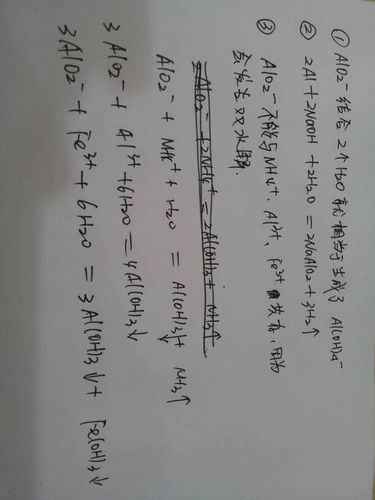 ① AlO₂⁻ 结合 2个H₂O 就相当于生成了 Al(OH)₄⁻
② 2Al+2NaOH+2H₂O=2NaAlO₂+3H₂↑
③ AlO₂⁻不能与NH₄⁺、Al³⁺、Fe³⁺ 共存,因为
会发生双水解.
2AlO₂⁻+2NH₄⁺=2Al(OH)₃+NH₃↑
AlO₂⁻+NH₄⁺+H₂O=Al(OH)₃↓+NH₃↑
3AlO₂⁻+Al³⁺+6H₂O=4Al(OH)₃↓
3AlO₂⁻+Fe³⁺+6H₂O=3Al(OH)₃↓+Fe(OH)₃↓